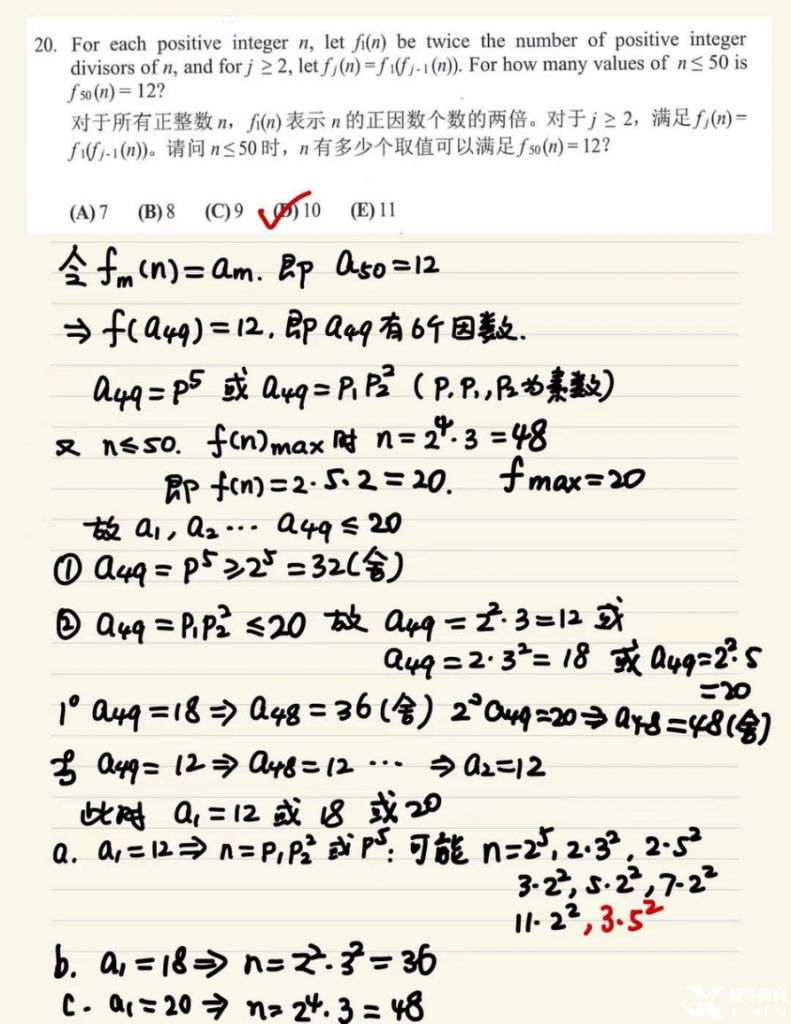 20. For each positive integer n, let f₁(n) be twice the number of positive integer
divisors of n, and for j ≥ 2, let fⱼ(n)=f₁(fⱼ₋₁(n)). For how many values of n≤ 50 is
f₅₀(n)= 12?
对于所有正整数 n，f₁(n)表示 n 的正因数个数的两倍。对于 j ≥ 2，满足 fⱼ(n)=
f₁(fⱼ₋₁(n))。请问 n≤50 时，n 有多少个取值可以满足 f₅₀(n)=12?
(A) 7 (B) 8 (C) 9 (D) 10 (E) 11
令 fₘ(n)=aₘ. 即 a₅₀=12
⇒ f(a₄₉)=12, 即 a₄₉有6个因数.
a₄₉=p⁵ 或 a₄₉=P₁P₂² (P.P₁,P₂为素数)
又 n≤50. f(n)max 时 n=2⁴·3=48
即 f(n)=2·5·2=20. fmax=20
故 a₁, a₂… a₄₉≤20
① a₄₉=p⁵≥2⁵=32(舍)
② a₄₉=P₁P₂²≤20 故 a₄₉=2²·3=12 或
a₄₉=2·3²=18 或 a₄₉=2²·5
=20
1° a₄₉=18⇒a₄₈=36(舍) 2° a₄₉=20⇒a₄₈=48(舍)
3 a₄₉=12⇒a₄₈=12 … ⇒a₂=12
此时 a₁=12 或 18 或 20
a. a₁=12⇒n=P₁P₂² 或 P⁵: 可能 n=2⁵, 2·3², 2·5²
3·2², 5·2², 7·2²
11·2², 3·5²
b. a₁=18⇒n=2²·3²=36
c. a₁=20⇒n=2⁴·3=48
X NEW